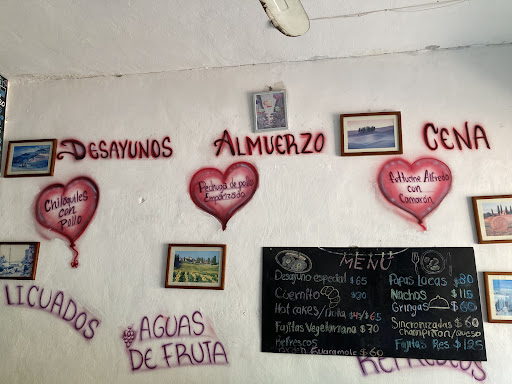 DESAYUNOS
ALMUERZO
CENA
Chilaquiles
con
Pollo
Pechuga de pollo
Empanizado
fettucine Alfredo
con
Camarón
LICUADOS
AGUAS
DE FRUTA
MENÚ
Desayuno especial $65
Cuernito $30
Hot cakes
Fajitas Vegetariana $70
Refrescos
Guacamole $60
Papas locas $80
Nachos $115
Gringas $60
Sincronizadas $60
Champiñon/queso
Fajitas Res $125